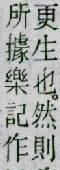 更生也。然則
所據樂記作